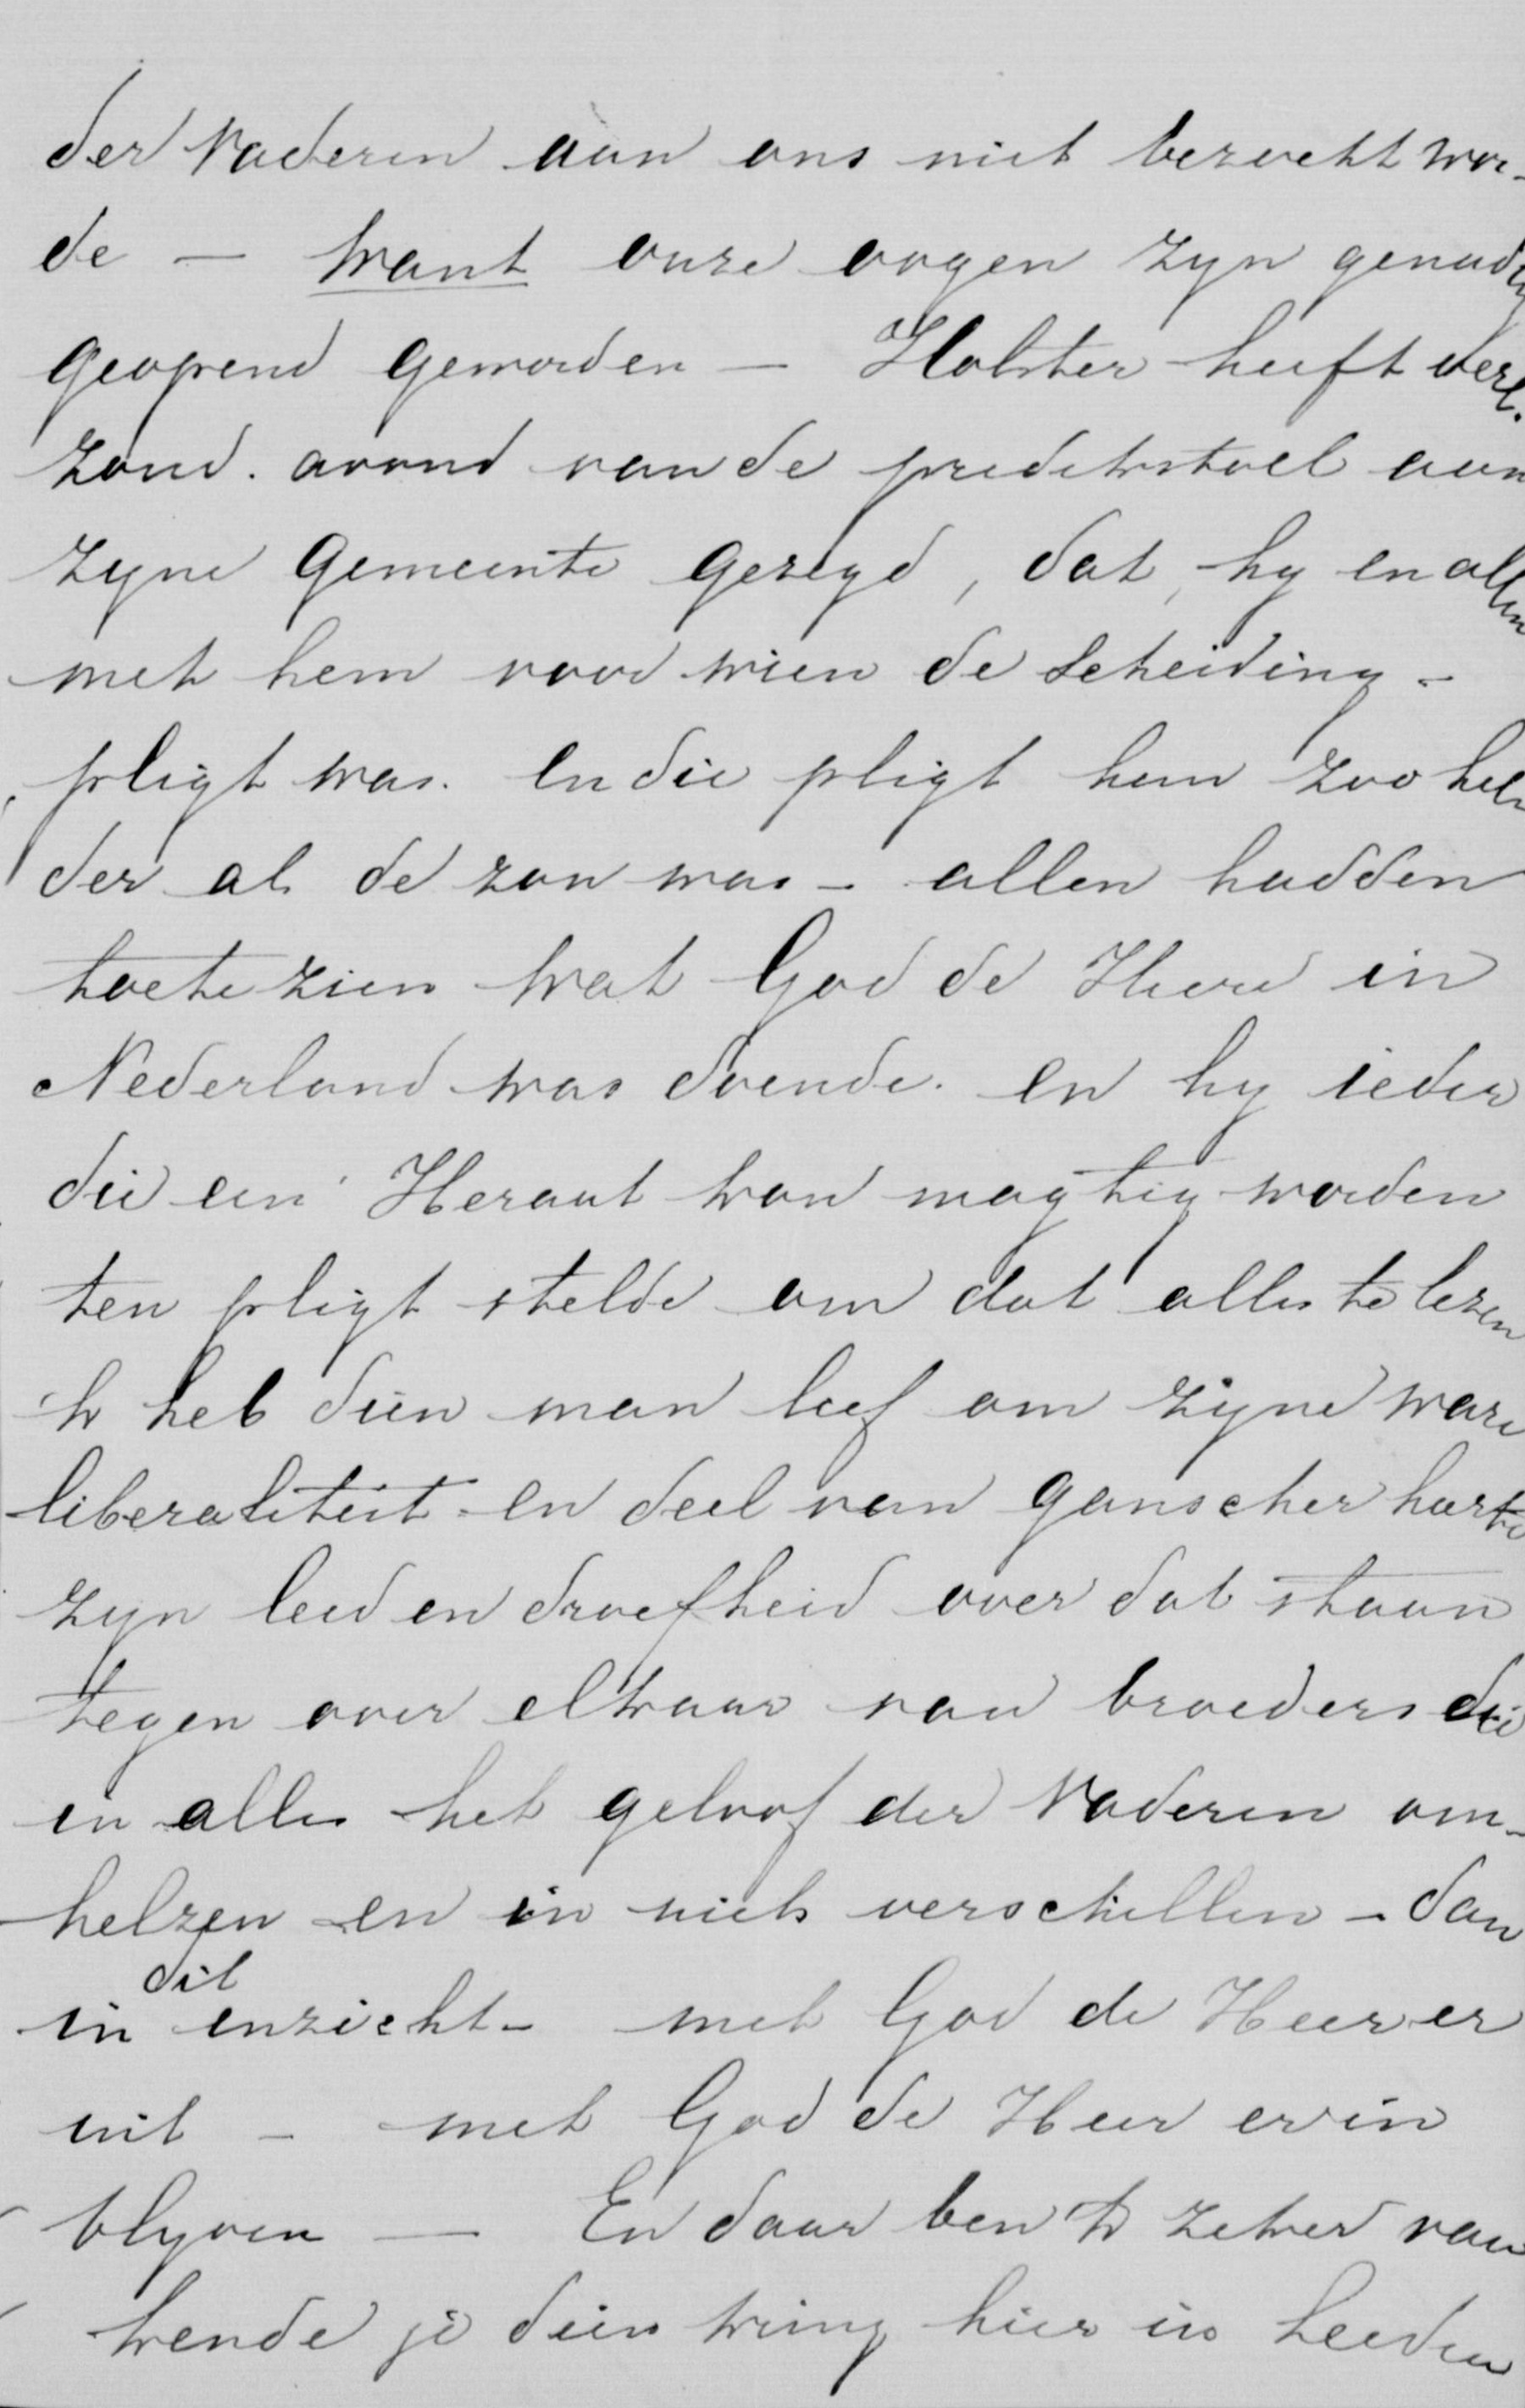 der Vaderen aan ons niet bezocht wor-
de — want onze oogen zyn genadig
geopend geworden — Holster heeft verl.
zond. avond van de predikstoel aan
zyne Gemeente gezegd, dat, hy en allen
met hem voor wien de scheiding -
pligt was. en die pligt hem zoo hel-
der als de zon was - allen hadden
toete zien wat God de Heere in
Nederland was doende. en hy ieder
die een Heraut kon magtig worden
ten pligt stelde om dat alles te lezen
'k heb dien man lief om zijne ware
liberaliteit en deel van ganscher harte
zyn leed en droefheid over dat staan
tegen over elkaar van broeders die
in alles het geloof der Vaderen om-
helzen en in niets verschillen - dan
in dit inzicht - met God de Heer er
uit - met God de Heer er in
blyven — En daar ben 'k zeker van
kende je dien kring hier in Leeden